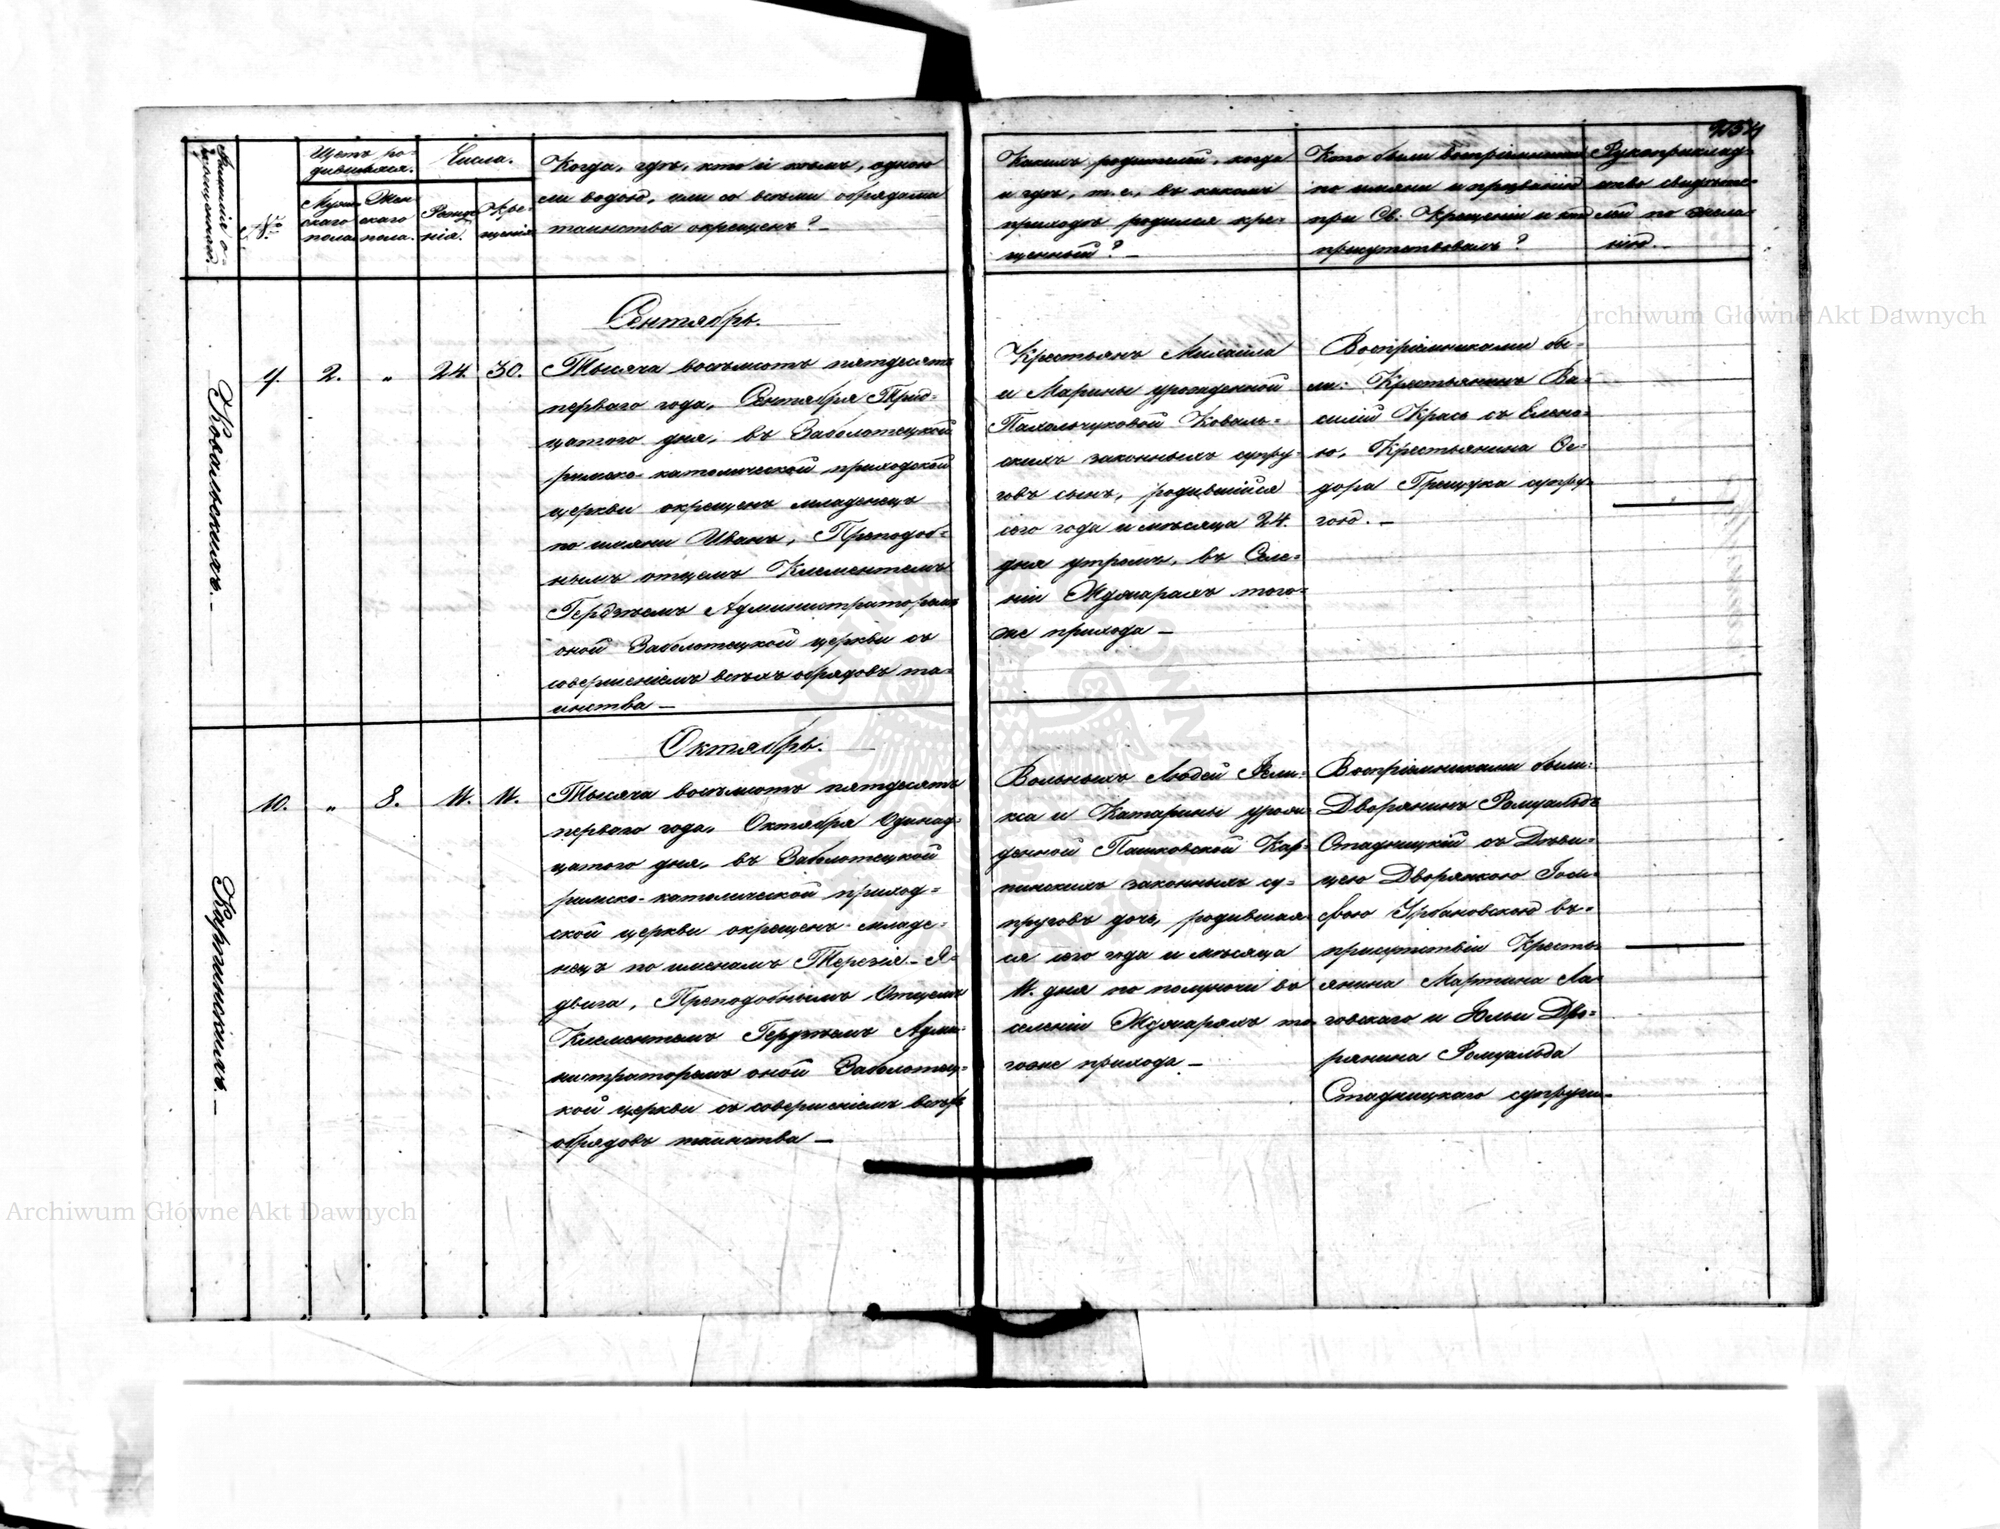 254
Фамилія о-
крещенной.
№
Щетъ ро-
дившихся.
Муже-
скаго
пола
Жен
скаго
пола.
Числа.
Рожде
нія.
Кре-
щенія
Когда, гдѣ, кто и кѣмъ, одною
ли водою, или со всѣми обрядами
таинства окрещенъ? –
Какихъ родителей, когда
и гдѣ, т. е., въ какомъ
приходѣ родился кре-
щенный? –
Кто были воспріемники
по имяни и прозванію
при Св. Крещеніи и кто
присутствовалъ?
Рукоприклад-
ство свидѣте-
лей по жела-
нію. –
Ковальскихъ. –
9.
2.
„
24.
30.
Сентябрь.
Тысяча восемьсотъ пятдесятъ
перваго года, Сентября Трид-
цатого дня, въ Заболотецкой
римско-католической приходской
церкви окрещенъ младенецъ
по имяни Иванъ, Преподоб-
нымъ отцемъ Клементемъ
Администраторомъ
оной Заболотецкой церкви съ
совершеніемъ всѣхъ обрядовъ та-
инства –
Крестьянъ Михаила
и Марины урожденной
Пахольчуковой Коваль-
скихъ законныхъ супру-
говъ сынъ, родившійся
сего года и мѣсяца 24.
дня утромъ, въ Селе-
ніи Жджарахъ того-
же прихода –
Воспріемниками бы-
ли: Крестьянинъ Ва-
силій Крась съ Елено-
ю, Крестьянина Ѳе-
дора Грещука супру-
гою. –
Карпинскихъ. –
10.
„
8.
11.
11.
Октябрь.
Тысяча восемьсотъ пятдесятъ
перваго года, Октября Одинад-
цатого дня, въ Заболотецкой
римско-католической приход-
ской церкви окрещенъ младе-
нецъ по именамъ Терезія-Я-
двига, Преподобнымъ Отцемъ
Клементемъ Адми-
нистраторомъ оной Заболотец-
кой церкви съ совершеніемъ всѣхъ
обрядовъ таинства –
Вольныхъ Людей Фели-
кса и Катарины урож-
денной Пашковской Кар-
пинскихъ законныхъ су-
пруговъ дочь, родившая-
ся сего года и мѣсяца
11. дня по полуночи въ
селеніи Жджарахъ то-
гоже прихода –
Воспріемниками были:
Дворянинъ Ромуальдъ
Стадницкій съ Дѣви-
цею Дворянкою Іози-
фою Урбановскою въ-
присутствіи Кресть-
янина Мартина Ла-
говскаго и Юліи Дво-
рянина Ромуальда
Стадницкаго супруги-
Archiwum Główne Akt Dawnych
Archiwum Główne Akt Dawnych